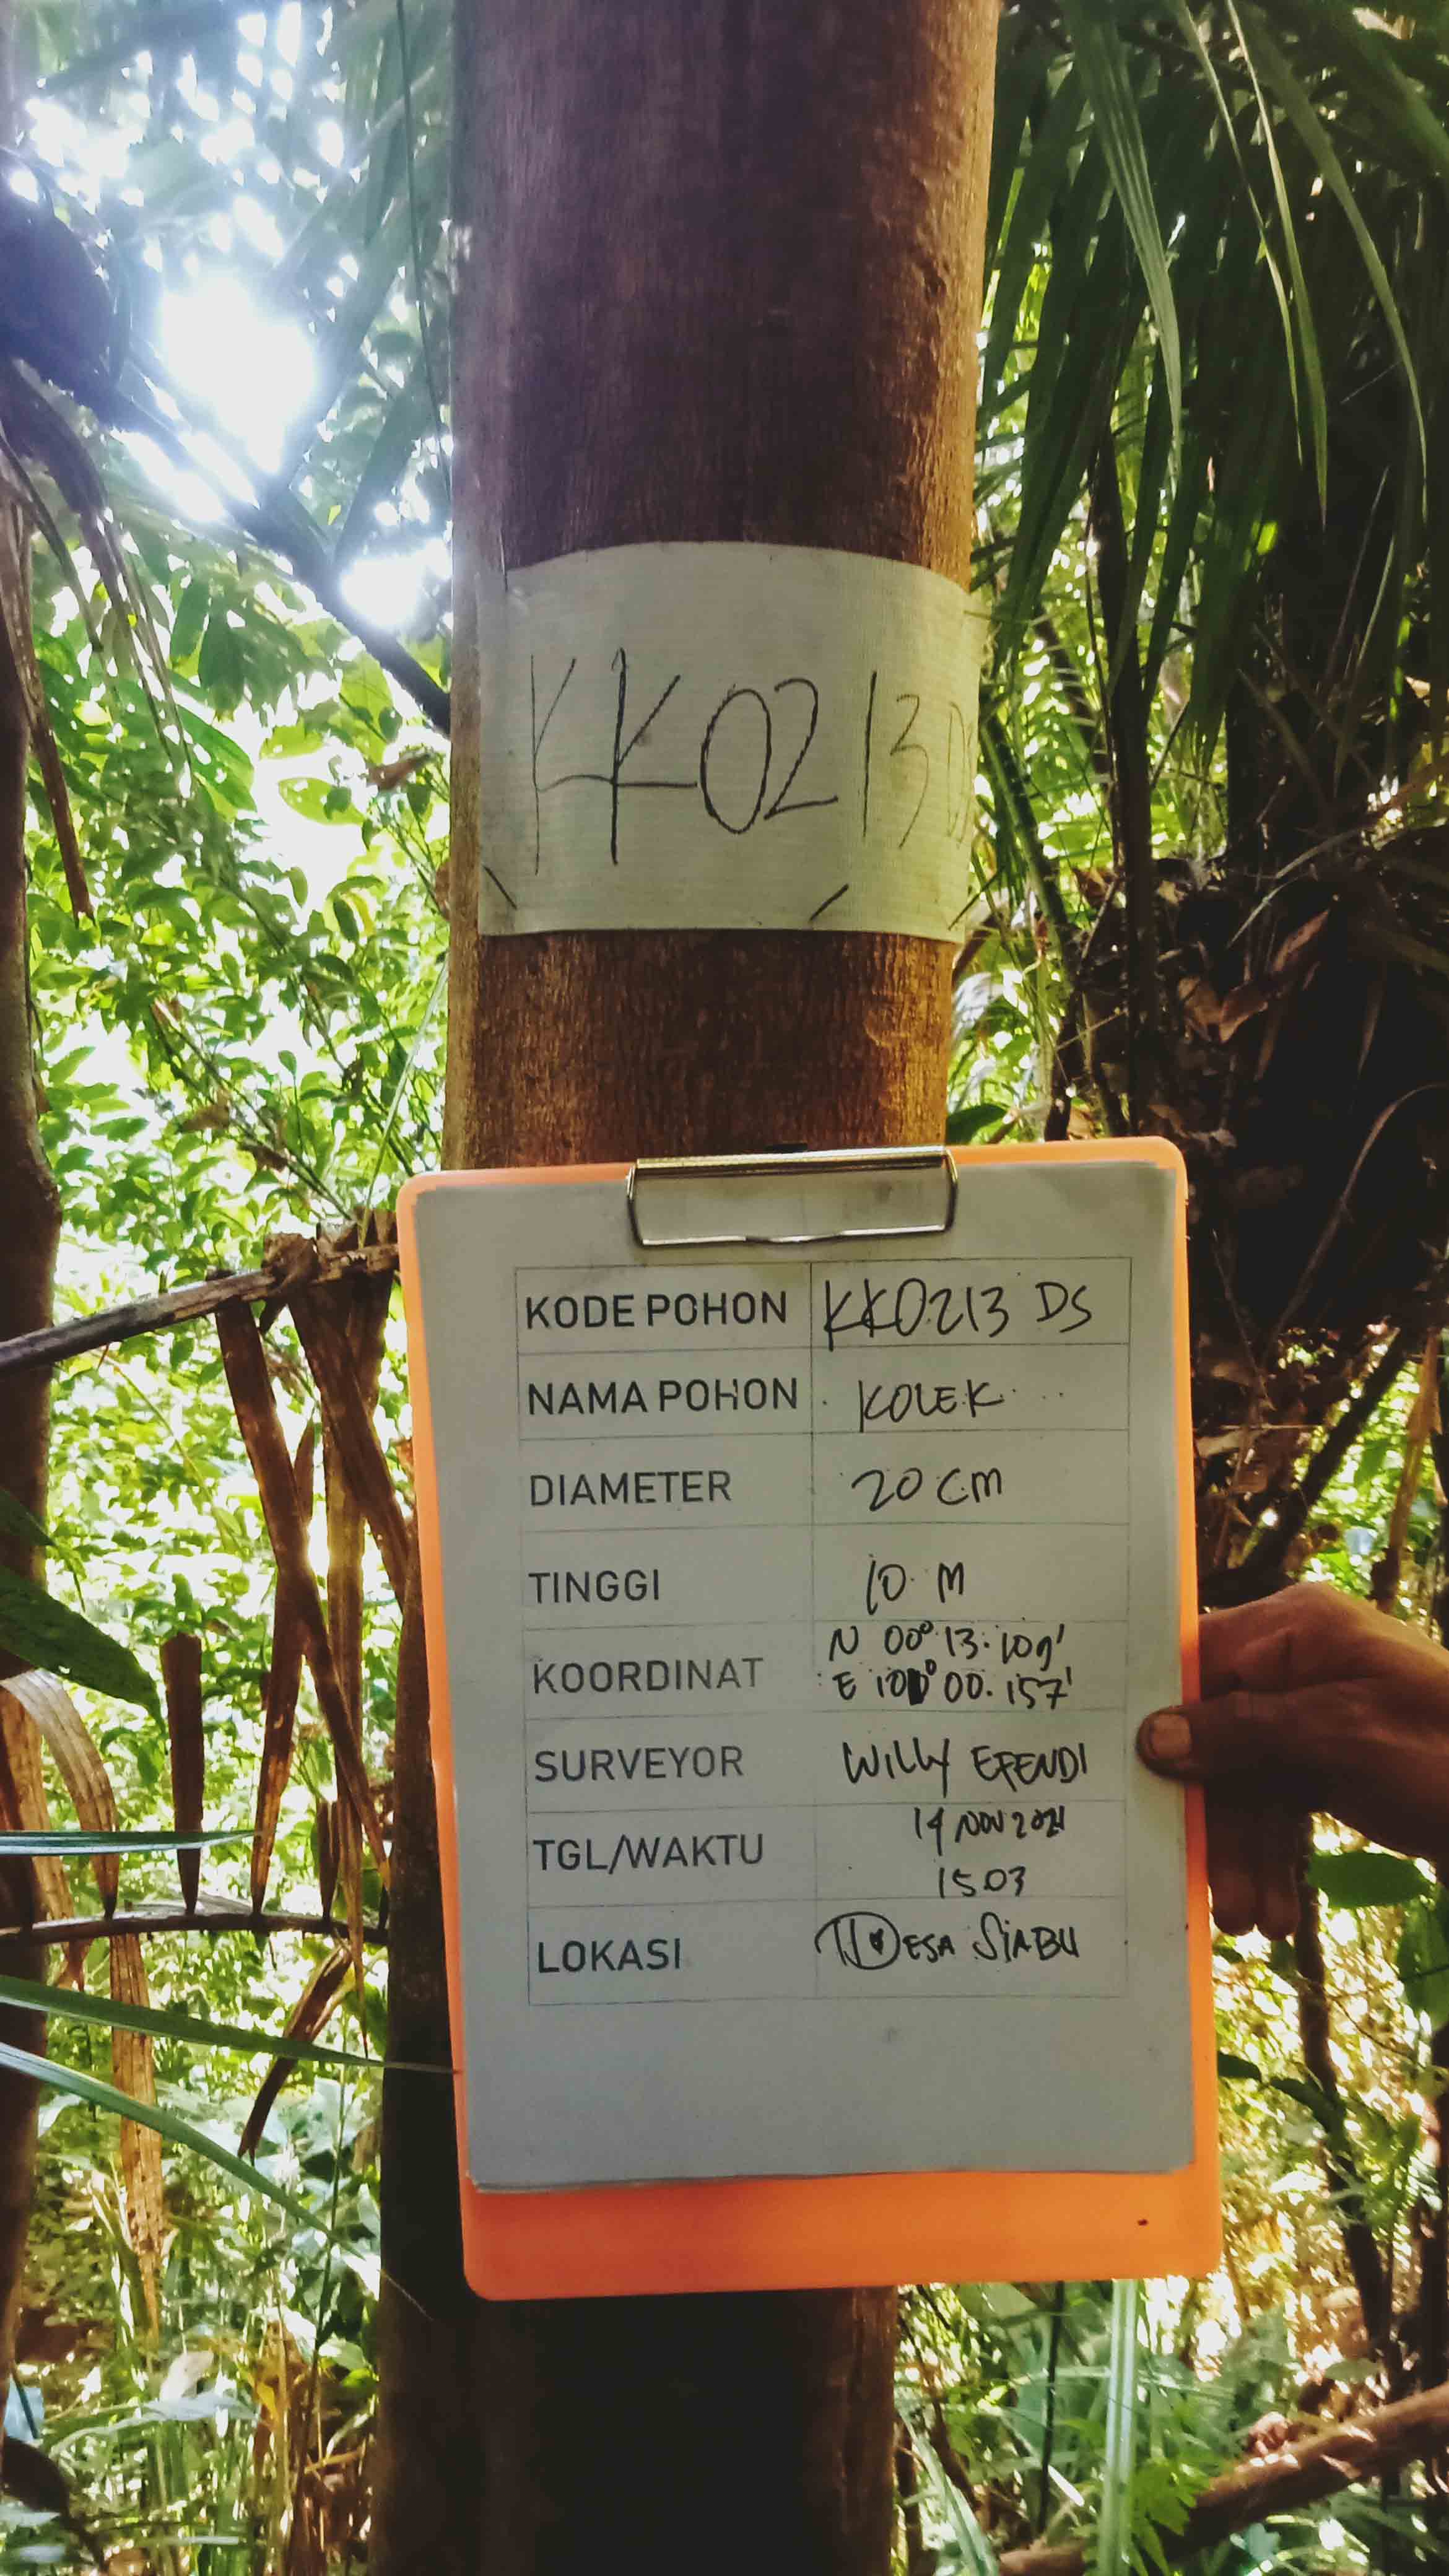 KK0213 DS
KODE POHON KK0213 DS
NAMA POHON KOLEK
DIAMETER 20 CM
TINGGI 10 M
KOORDINAT N 00° 13.109'
E 100° 00.157'
SURVEYOR WILLY EFENDI
TGL/WAKTU 14 NOV 2021
15.03
LOKASI DESA SIABU